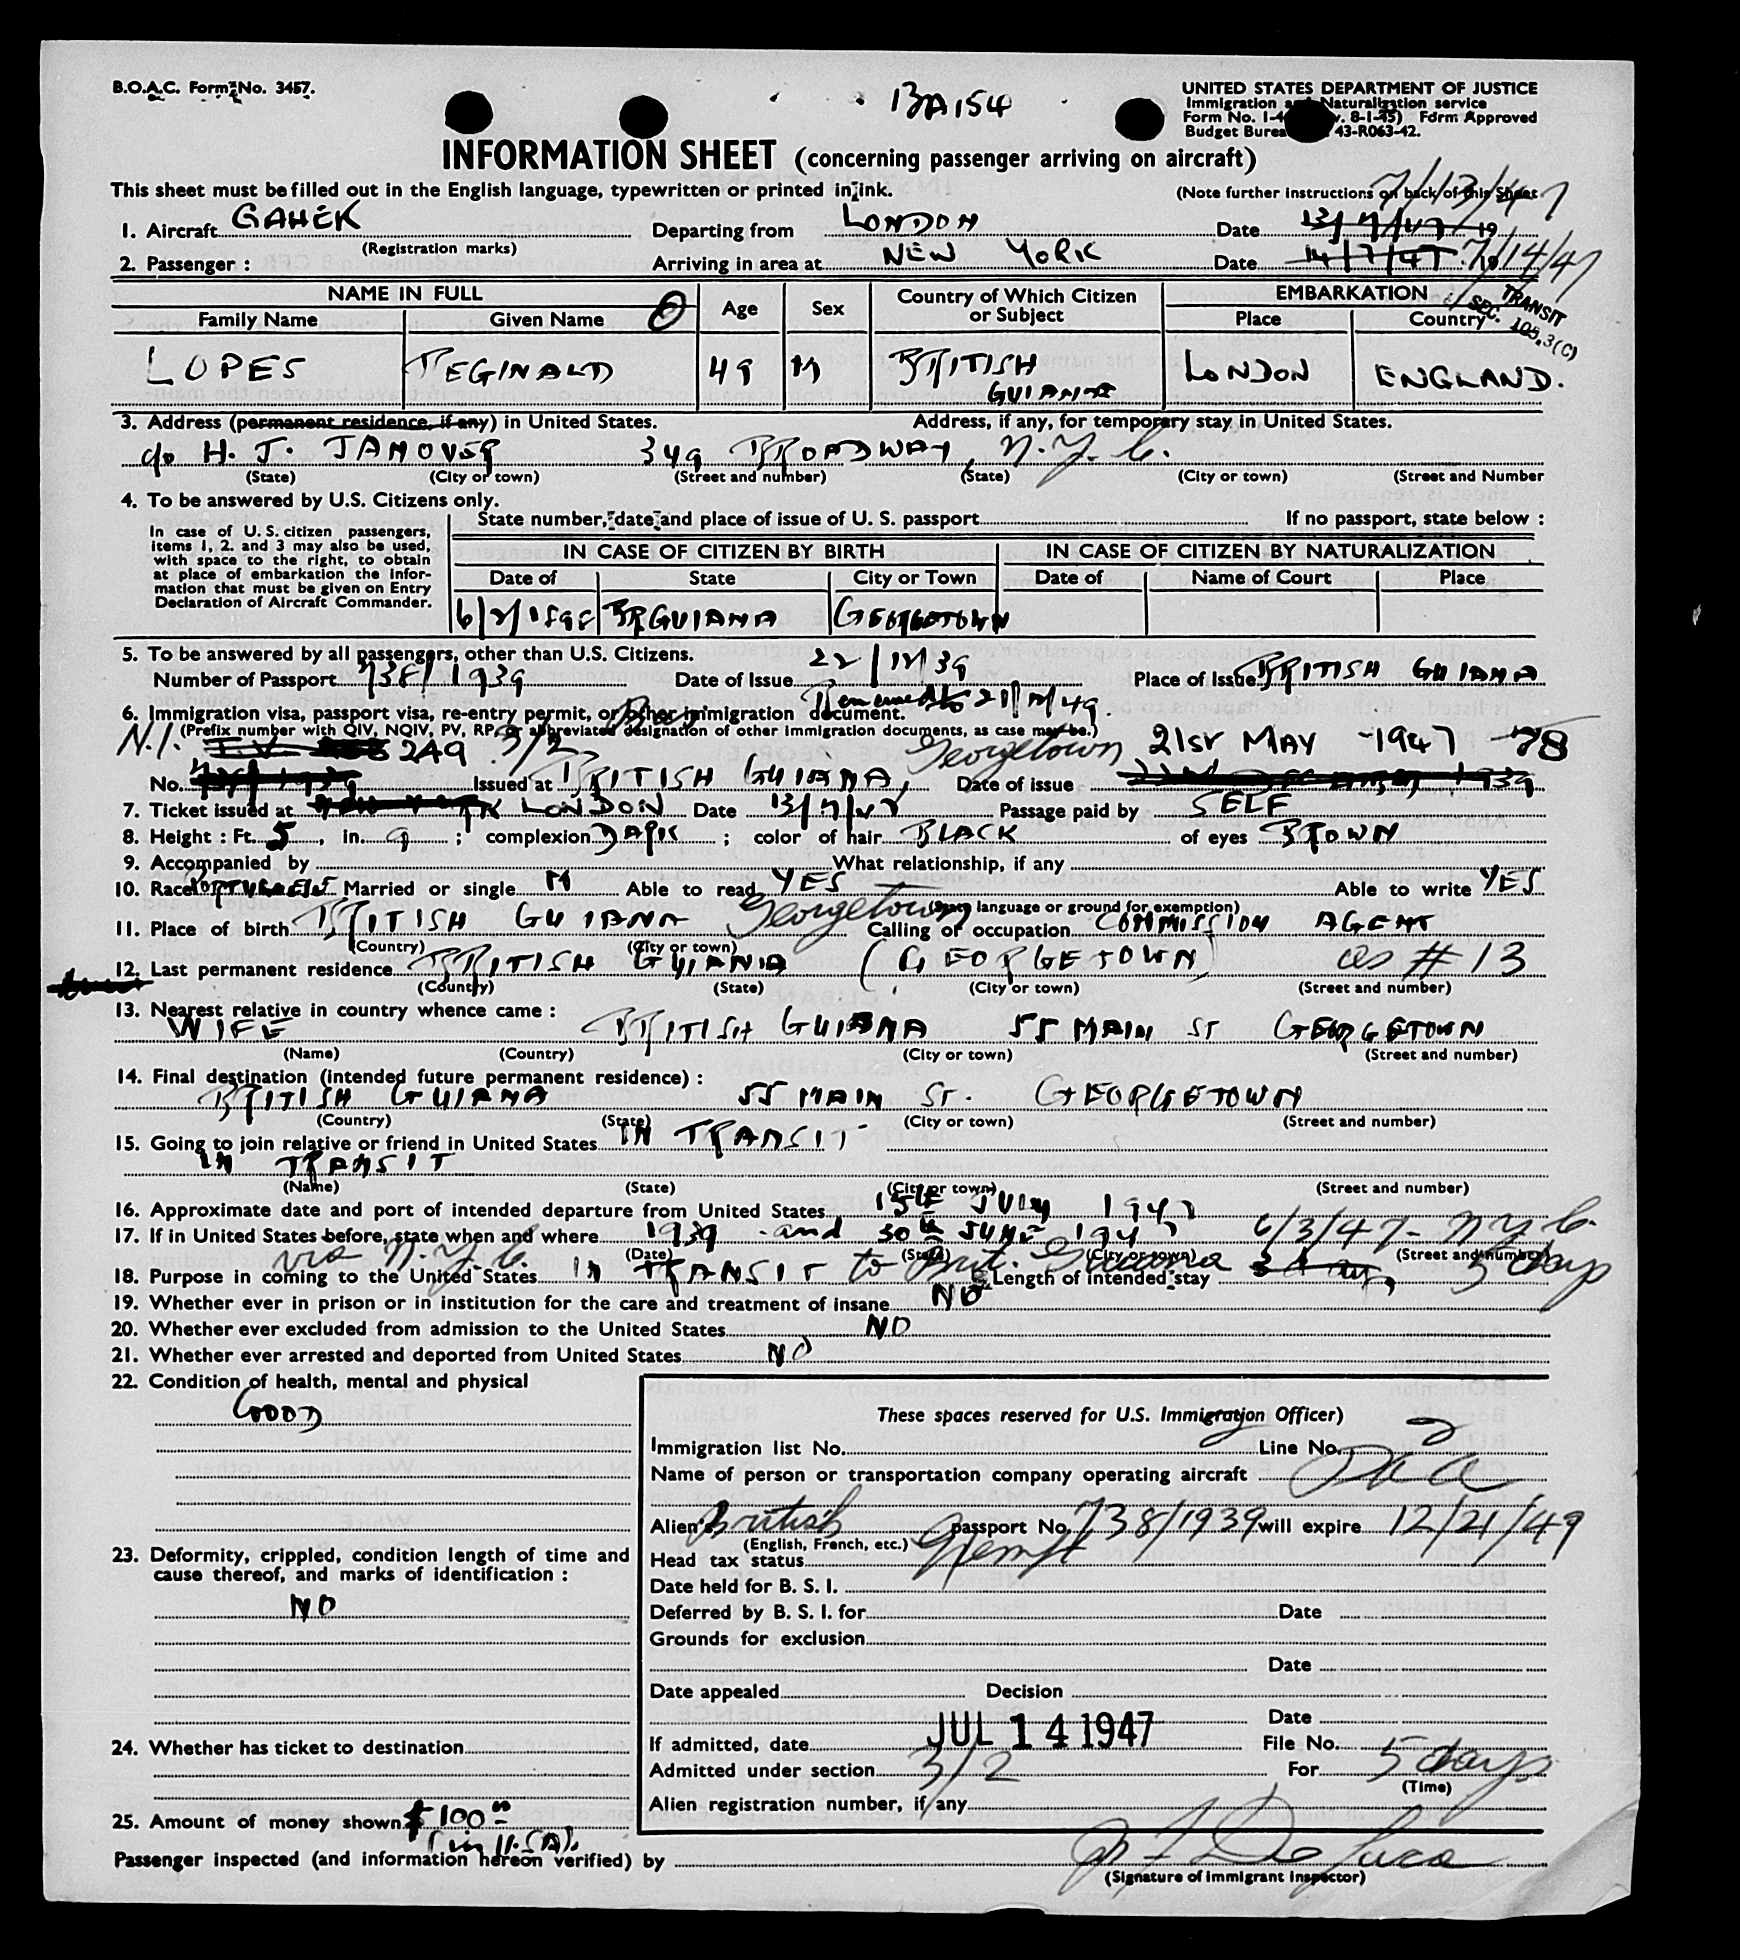 B.O.A.C. Form No. 3457.
BA 154
UNITED STATES DEPARTMENT OF JUSTICE
Immigration and Naturalization service
Form No. I-4 v. 8-1-45) Form Approved
Budget Burea 43-R063-42.
INFORMATION SHEET (concerning passenger arriving on aircraft)
This sheet must be filled out in the English language, typewritten or printed in ink.
(Note further instructions on back of this Sheet
7/13/47
1. Aircraft GAHEK Departing from LONDON Date 13/7/47 19
(Registration marks)
2. Passenger : Arriving in area at NEW YORK Date 14/7/47 7/14/47
NAME IN FULL Age Sex Country of Which Citizen or Subject EMBARKATION
TRANSIT SEC. 105.3(C)
Family Name Given Name Place Country
LOPES REGINALD 49 M BRITISH GUIANA LONDON ENGLAND.
3. Address (permanent residence, if any) in United States. Address, if any, for temporary stay in United States.
c/o H. J. JANOVER 349 BROADWAY, N.Y.C.
(State) (City or town) (Street and number) (State) (City or town) (Street and Number
4. To be answered by U.S. Citizens only.
State number, date and place of issue of U. S. passport If no passport, state below :
In case of U. S. citizen passengers,
items 1, 2. and 3 may also be used,
with space to the right, to obtain
at place of embarkation the infor-
mation that must be given on Entry
Declaration of Aircraft Commander.
IN CASE OF CITIZEN BY BIRTH IN CASE OF CITIZEN BY NATURALIZATION
Date of State City or Town Date of Name of Court Place
6/2/1898 BR GUIANA GEORGETOWN
5. To be answered by all passengers, other than U.S. Citizens.
Number of Passport 738/1939 Date of Issue 22/12/39 Place of Issue BRITISH GUIANA
Renewed to 21/12/49.
6. Immigration visa, passport visa, re-entry permit, or other immigration document.
(Prefix number with QIV, NQIV, PV, RP, or abbreviated designation of other immigration documents, as case may be.)
N.I. 249 3/2 Georgetown 21ST MAY 1947 78
No. Issued at BRITISH GUIANA, Date of issue 1939
7. Ticket issued at LONDON Date 13/7/47 Passage paid by SELF
8. Height : Ft. 5, in. 9 ; complexion DARK ; color of hair BLACK of eyes BROWN
9. Accompanied by What relationship, if any
10. Race PORTUGUESE Married or single M Able to read YES Able to write YES
(State language or ground for exemption)
11. Place of birth BRITISH GUIANA Georgetown Calling or occupation COMMISSION AGENT
(Country) (City or town)
12. Last permanent residence BRITISH GUIANA (GEORGETOWN) as # 13
(Country) (State) (City or town) (Street and number)
13. Nearest relative in country whence came :
WIFE BRITISH GUIANA 55 MAIN ST GEORGETOWN
(Name) (Country) (City or town) (Street and number)
14. Final destination (intended future permanent residence) :
BRITISH GUIANA 55 MAIN ST. GEORGETOWN
(Country) (State) (City or town) (Street and number)
15. Going to join relative or friend in United States IN TRANSIT
IN TRANSIT
(Name) (State) (City or town) (Street and number)
16. Approximate date and port of intended departure from United States 15th JULY 1947
17. If in United States before, state when and where 1939 and 30th JUNE 1947 6/3/47 - N.Y.C.
via N.Y.C. (Date) (State) (City or town) (Street and number)
18. Purpose in coming to the United States IN TRANSIT to Brit. Guiana Length of intended stay 3 days 5 days
19. Whether ever in prison or in institution for the care and treatment of insane NO
20. Whether ever excluded from admission to the United States NO
21. Whether ever arrested and deported from United States NO
22. Condition of health, mental and physical
GOOD
23. Deformity, crippled, condition length of time and
cause thereof, and marks of identification :
NO
24. Whether has ticket to destination
25. Amount of money shown $100
(in U.S.A).
These spaces reserved for U.S. Immigration Officer)
Immigration list No. Line No. 2
Name of person or transportation company operating aircraft
Alien's British passport No. 738/1939 will expire 12/21/49
(English, French, etc.)
Head tax status Exempt
Date held for B. S. I.
Deferred by B. S. I. for Date
Grounds for exclusion
Date
Date appealed Decision
Date
If admitted, date JUL 14 1947 File No.
Admitted under section 3/2 For 5 days
(Time)
Alien registration number, if any
Passenger inspected (and information hereon verified) by De Luca
(Signature of Immigrant Inspector)